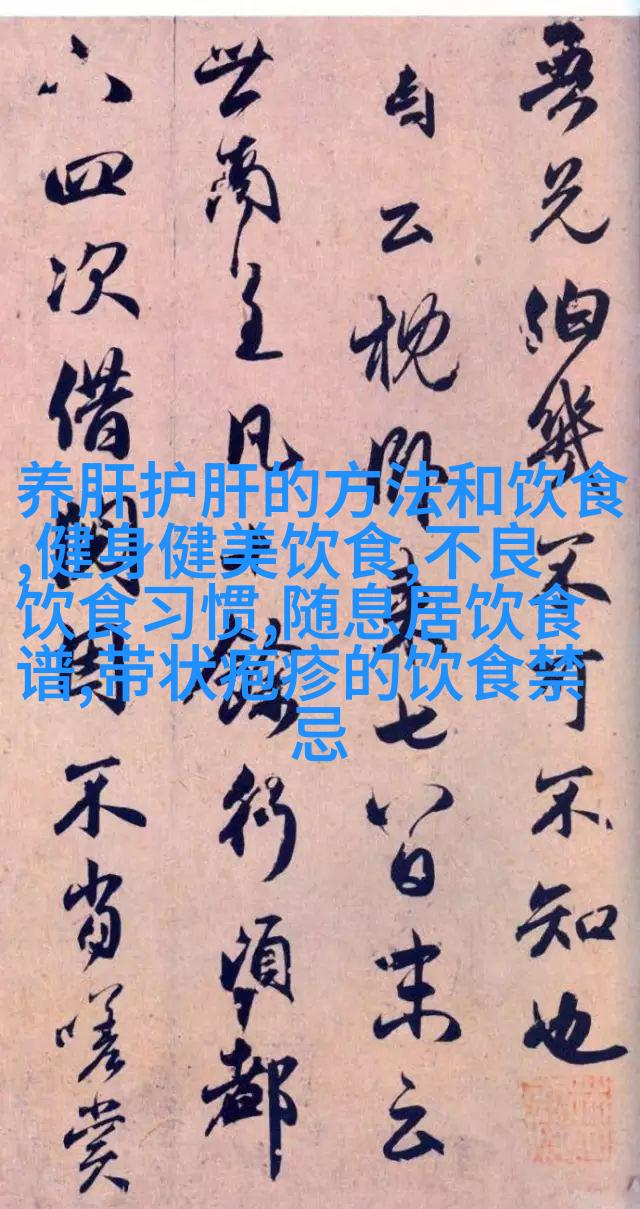 兄伯幾不可不知也
自云枕卧七八日来云
世南
凡餘行須都
四次借不嗟赏
养肝护肝的方法和饮食
,健身健美饮食,不良
饮食习惯,随息居饮食
谱,带状疱疹的饮食禁
忌